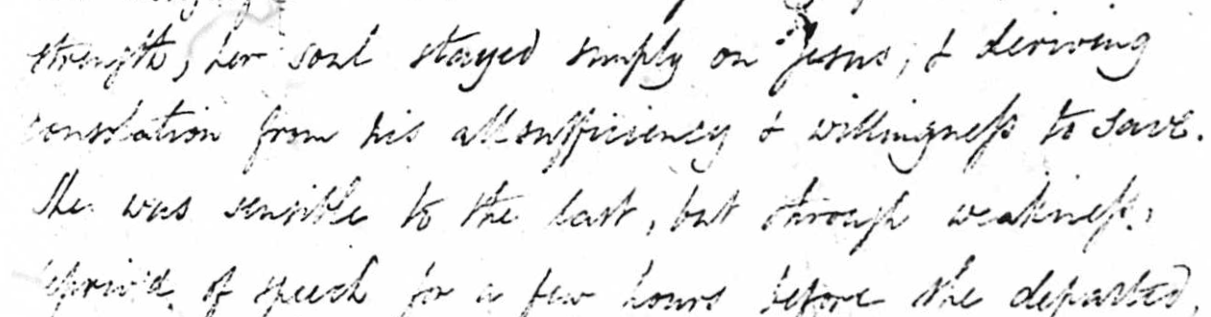 strength, her soul stayed simply on Jesus, & deriving
consolation from his allsufficiency & willingneſs to save.
She was sensible to the last, but through weakneſs,
depriv'd of speech for a few hours before she departed,